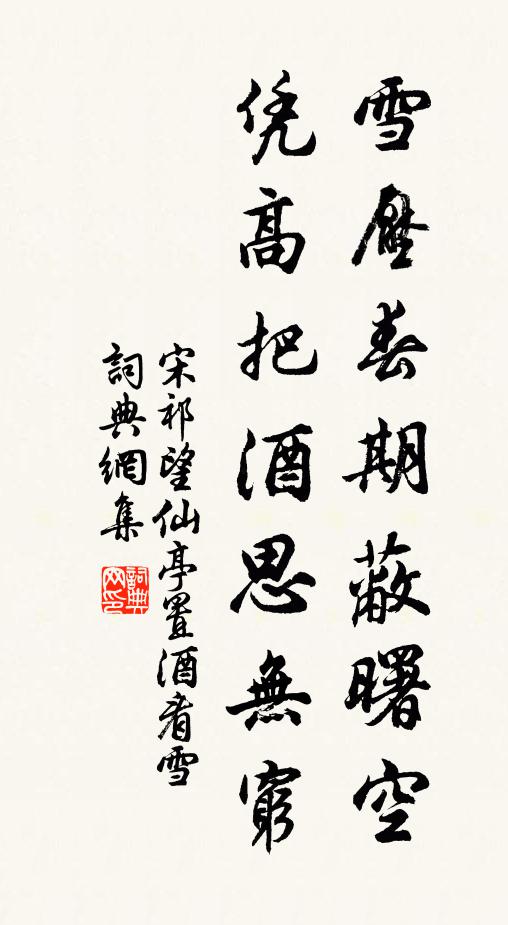 雪壓春期蔽曙空
凭高把酒思無窮
宋祁望仙亭置酒看雪
詞典網集
詞典網印